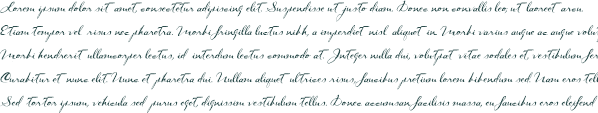 Lorem ipsum dolor sit amet, consectetur adipiscing elit. Suspendisse ut justo diam. Donec non convallis leo, ut laoreet arcu.
Etiam tempor vel risus nec pharetra. Morbi fringilla luctus nibh, a imperdiet nisl aliquet in. Morbi varius augue ac augue
Morbi hendrerit ullamcorper lectus, id interdum lectus commodo at. Integer nulla dui, volutpat vitae sodales et, vestibulum
Curabitur et nunc elit. Nunc et pharetra dui. Nullam aliquet ultrices risus, faucibus pretium lorem bibendum sed. Nam eros
Sed tortor ipsum, vehicula sed purus eget, dignissim vestibulum tellus. Donec accumsan facilisis massa, eu faucibus eros eleifend